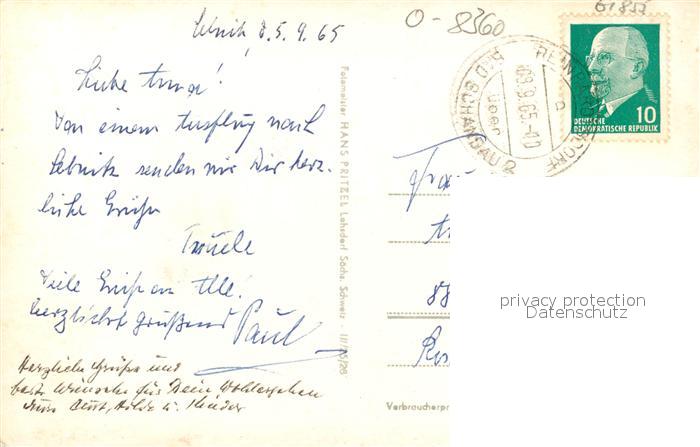 Sebnitz, d. 5.9.65
O-8360
61855
Liebe Anna!
Von einem Ausflug nach
Sebnitz senden wir Dir herz-
liche Grüße
Viele Grüße an Alle!
herzlichst grüßend Paul
Herzliche Grüße und
beste Wünsche für Dein Wohlergehen
Hilde u. Kinder
Fotomeister HANS PRITZEL Lohsdorf Sächs. Schweiz - III/26/28
BAD SCHANDAU 2
über
09.9.65-10
a
10
DEUTSCHE
DEMOKRATISCHE REPUBLIK
88
Verbraucherpr
privacy protection
Datenschutz